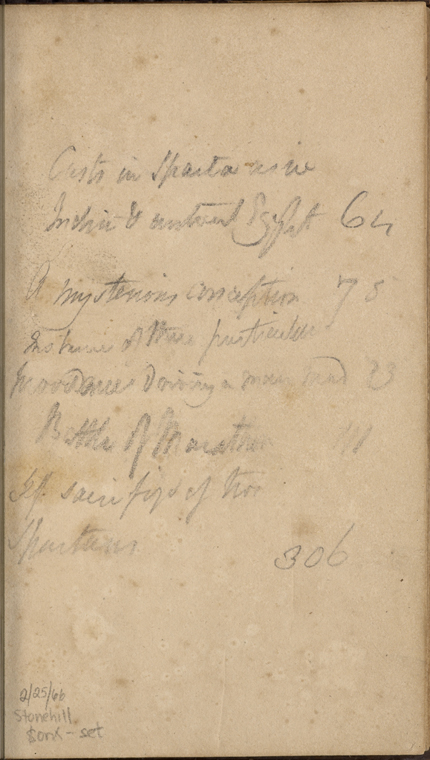 Casts in Sparta as in
India & ancient Egypt 64
A mysterious conception 75
Instance of three particular
driving a man mad 93
Battle of Marathon 111
Self sacrifize of two
Spartans 306
2/25/66
Stonehill
- set